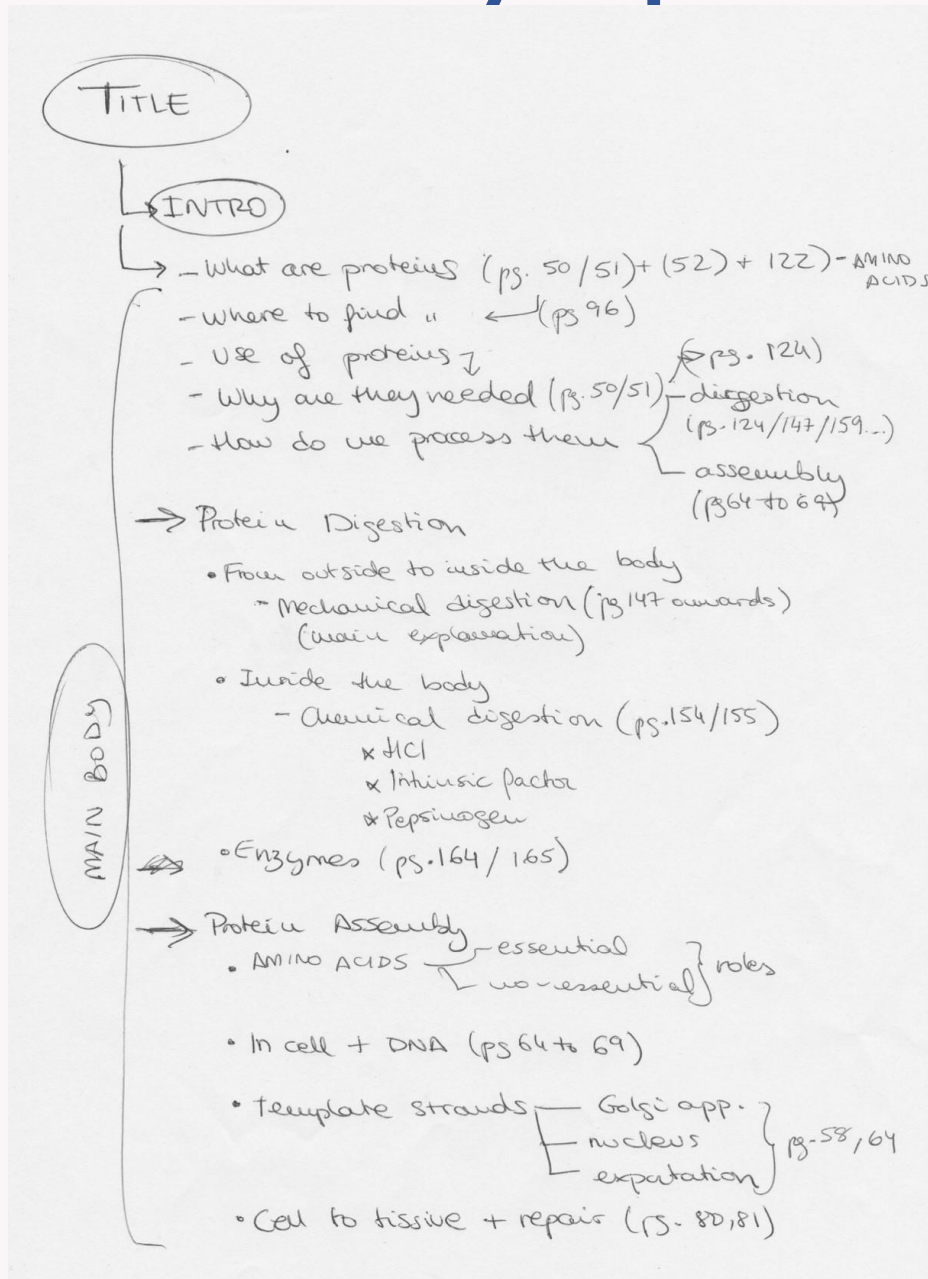 TITLE
INTRO
- What are proteins (pg. 50/51) + (52) + 122) - AMINO ACIDS
- Where to find " ← (pg 96)
- Use of proteins
(→ pg. 124)
- Why are they needed (pg. 50/51)
- How do we process them
- digestion
(pg. 124/147/159...)
- assembly
(pg 64 to 69)
→ Protein Digestion
• From outside to inside the body
- Mechanical digestion (pg 147 onwards)
(main explanation)
• Inside the body
- Chemical digestion (pg. 154/155)
* HCl
* Intrinsic factor
* Pepsinogen
• Enzymes (pg. 164 / 165)
MAIN BODY
→ Protein Assembly
• AMINO ACIDS
- essential
- no-essential
} roles
• In cell + DNA (pg 64 to 69)
• Template strands
- Golgi app.
- nucleus
- expotation
} pg. 58, 64
• Cell to tissive + repair (pg. 80, 81)